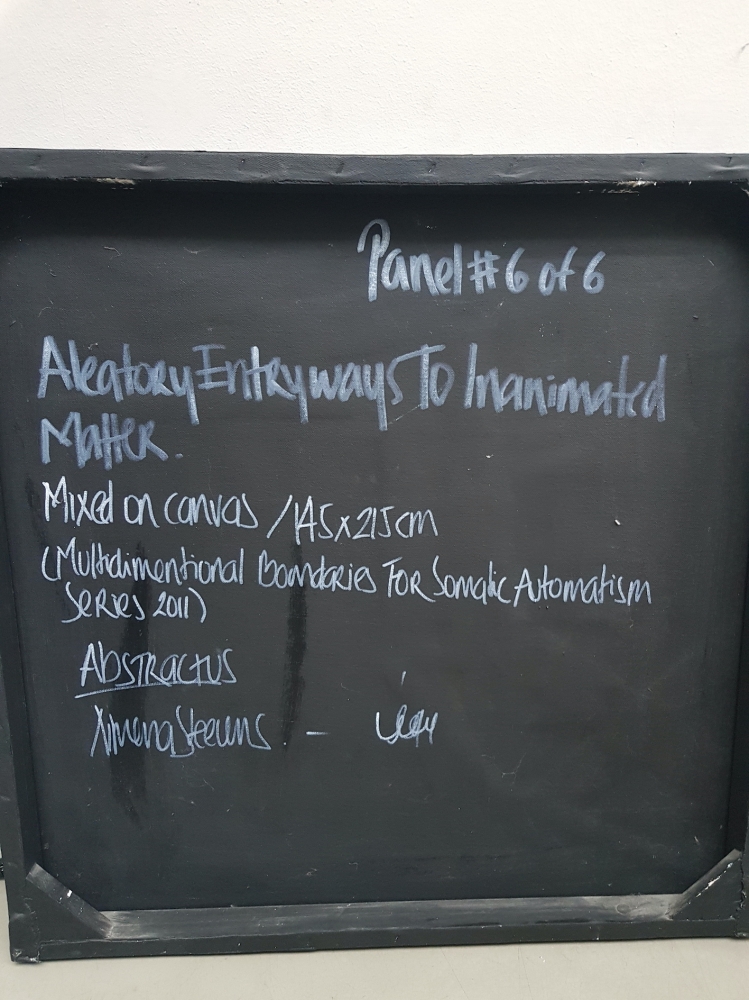 Panel #6 of 6
Aleatory Entryways To Inanimated
Matter.
Mixed on canvas / 145x215cm
(Multidimentional Boundaries For Somatic Automatism
Series 2011)
Abstractus
Ximena -